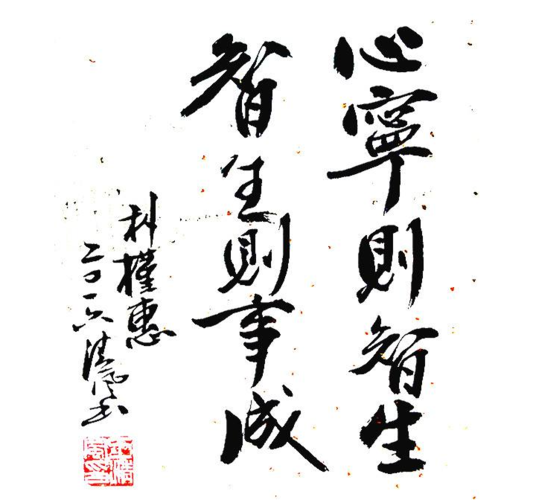 心寧則智生
智生則事成
科槿惠
二〇一六清